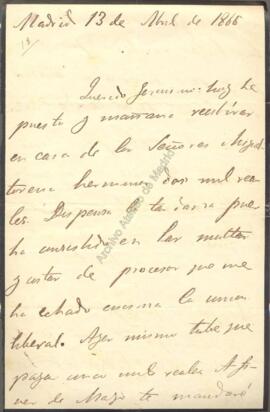 Madrid 13 de Abril de 1866
Querido Geronimo: hoy he
puesto y mañana recibiras
en casa de los Señores
hermanos dos mil rea-
les. Dispensa la tardanza pues
ha consistido en las multas
y costas de procesos que me
ha echado encima la union
liberal. Ayer mismo tube que
pagar once mil reales. A fi-
nes de Mayo te mandaré
Archivo Ateneo de Madrid